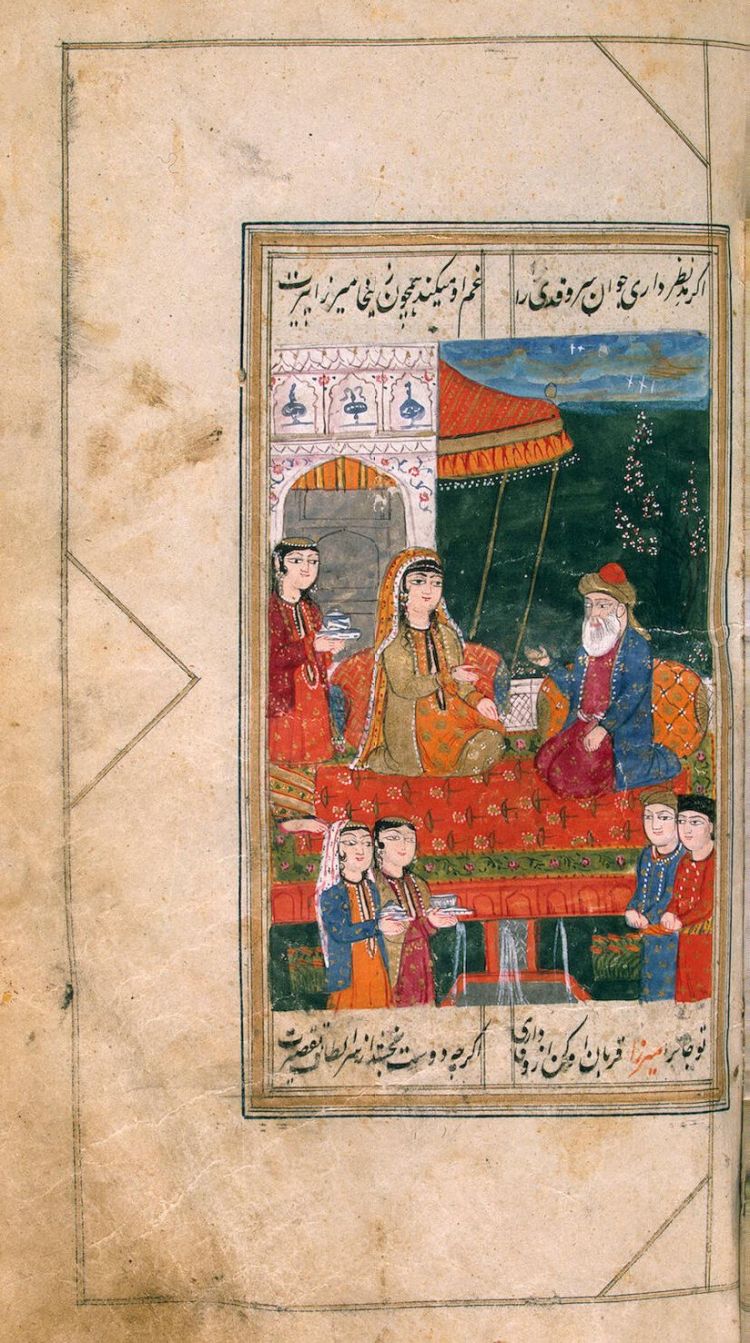 اگر مد نظر داری جوان سرو قدی را غم او میکند همچون زلیخا میرزا پیرت
تو جانرا میرزا قربان او کن از وفاداری اگرچه دوست بخشد از سر الطاف تقصیرت